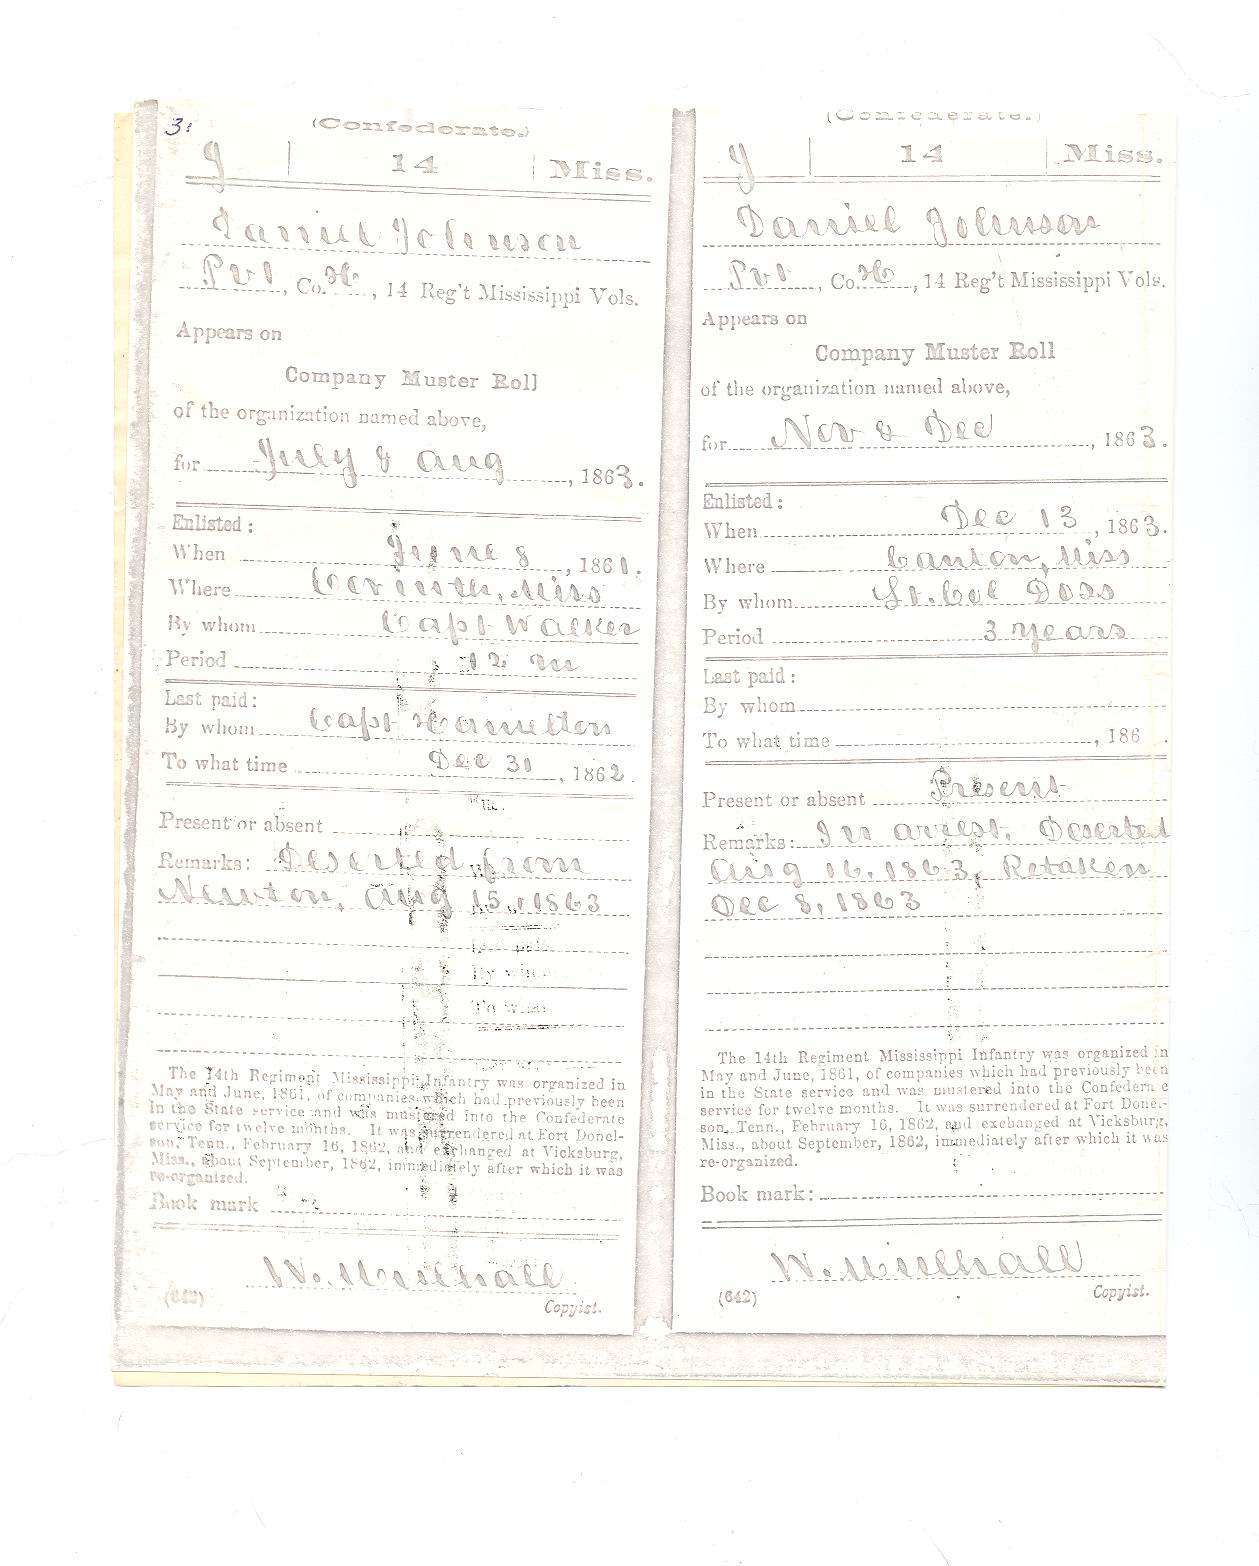 3:
(Confederate.)
J | 14 | Miss.
Daniel Johnson
Pvt, Co. H, 14 Reg't Mississippi Vols.
Appears on
Company Muster Roll
of the organization named above,
for July & Aug, 1863.
Enlisted:
When June 8, 1861.
Where Corinth, Miss
By whom Capt Walker
Period 12 m
Last paid:
By whom Capt Hamilton
To what time Dec 31, 1862.
Present or absent
Remarks: Deserted from
Newton, Aug 15, 1863
By
To what
The 14th Regiment Mississippi Infantry was organized in
May and June, 1861, of companies which had previously been
in the State service and was mustered into the Confederate
service for twelve months. It was surrendered at Fort Donel-
son, Tenn., February 16, 1862, and exchanged at Vicksburg,
Miss., about September, 1862, immediately after which it was
re-organized.
Book mark
W. Mullhall
(642) Copyist.
(Confederate.)
J | 14 | Miss.
Daniel Johnson
Pvt, Co. H, 14 Reg't Mississippi Vols.
Appears on
Company Muster Roll
of the organization named above,
for Nov & Dec, 1863.
Enlisted:
When Dec 13, 1863.
Where Canton, Miss
By whom Lt. Col Doss
Period 3 years
Last paid:
By whom
To what time , 186 .
Present or absent Present
Remarks: In arrest. Deserted
Aug 16, 1863, Retaken
Dec 8, 1863
The 14th Regiment Mississippi Infantry was organized in
May and June, 1861, of companies which had previously been
in the State service and was mustered into the Confedera e
service for twelve months. It was surrendered at Fort Donel-
son, Tenn., February 16, 1862, and exchanged at Vicksburg,
Miss., about September, 1862, immediately after which it was
re-organized.
Book mark:
W. Mullhall
(642) Copyist.